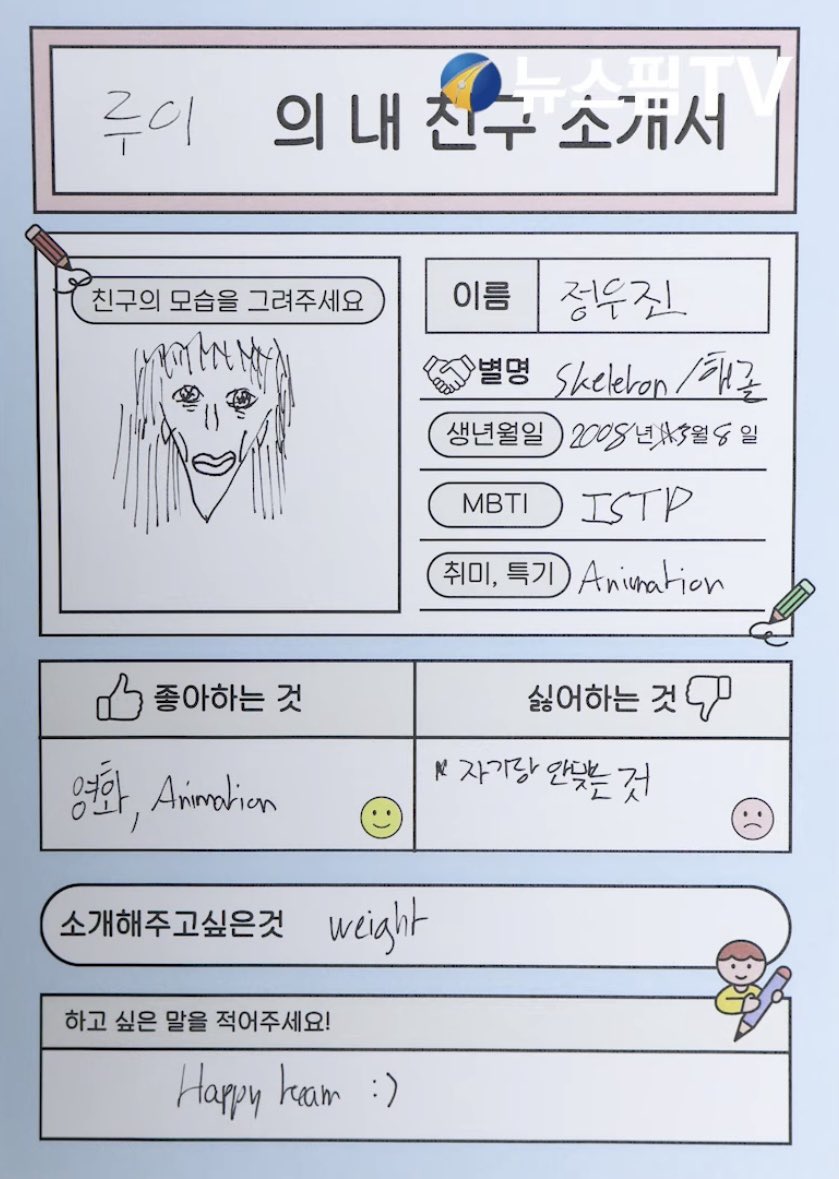 뉴스핌TV
루이 의 내 친구 소개서
친구의 모습을 그려주세요
이름 정우진
별명 Skeleton / 해골
생년월일 2008년 월 8일
MBTI ISTP
취미, 특기 Animation
좋아하는 것
싫어하는 것
영화, Animation
자기랑 안맞는 것
소개해주고싶은것 weight
하고 싶은 말을 적어주세요!
Happy team :)